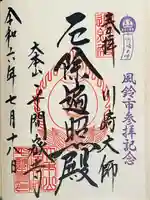 風鈴市参拝記念
奉拝
川崎大師
厄除遍照殿
大本山
平間寺
令和六年七月十八日